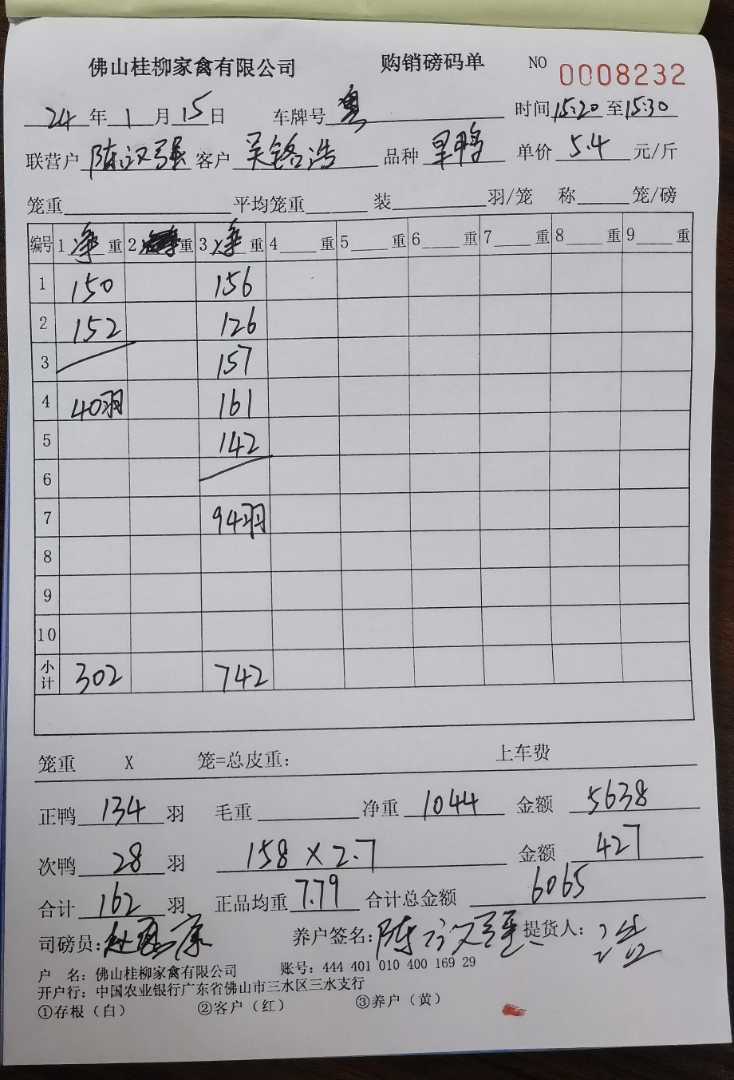 佛山桂柳家禽有限公司 购销磅码单 NO 0008232
24年1月15日 车牌号 粤 时间15:20至15:30
联营户 陈汉强 客户 吴铭浩 品种 旱鸭 单价 5.4 元/斤
笼重 平均笼重 装 羽/笼 称 笼/磅
编号 1 净 重 2 重 3 净 重 4 重 5 重 6 重 7 重 8 重 9 重
1 150 156
2 152 126
3 157
4 40羽 161
5 142
6
7 94羽
8
9
10
小计 302 742
笼重 X 笼=总皮重: 上车费
正鸭 134 羽 毛重 净重 1044 金额 5638
次鸭 28 羽 158×2.7 金额 427
合计 162 羽 正品均重 7.79 合计总金额 6065
司磅员: 养户签名: 陈汉强 提货人: 浩
户 名: 佛山桂柳家禽有限公司 账号: 444 401 010 400 169 29
开户行: 中国农业银行广东省佛山市三水区三水支行
①存根（白） ②客户（红） ③养户（黄）